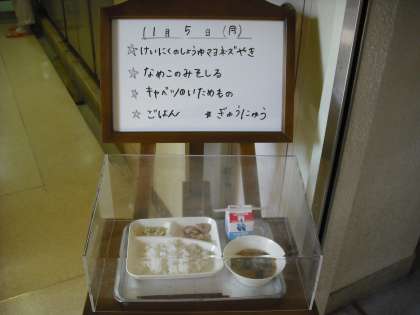 11月5日(月)
☆けいにくのしょうゆマヨネーズやき
☆なめこのみそしる
☆キャベツのいためもの
☆ごはん ☆ぎゅうにゅう